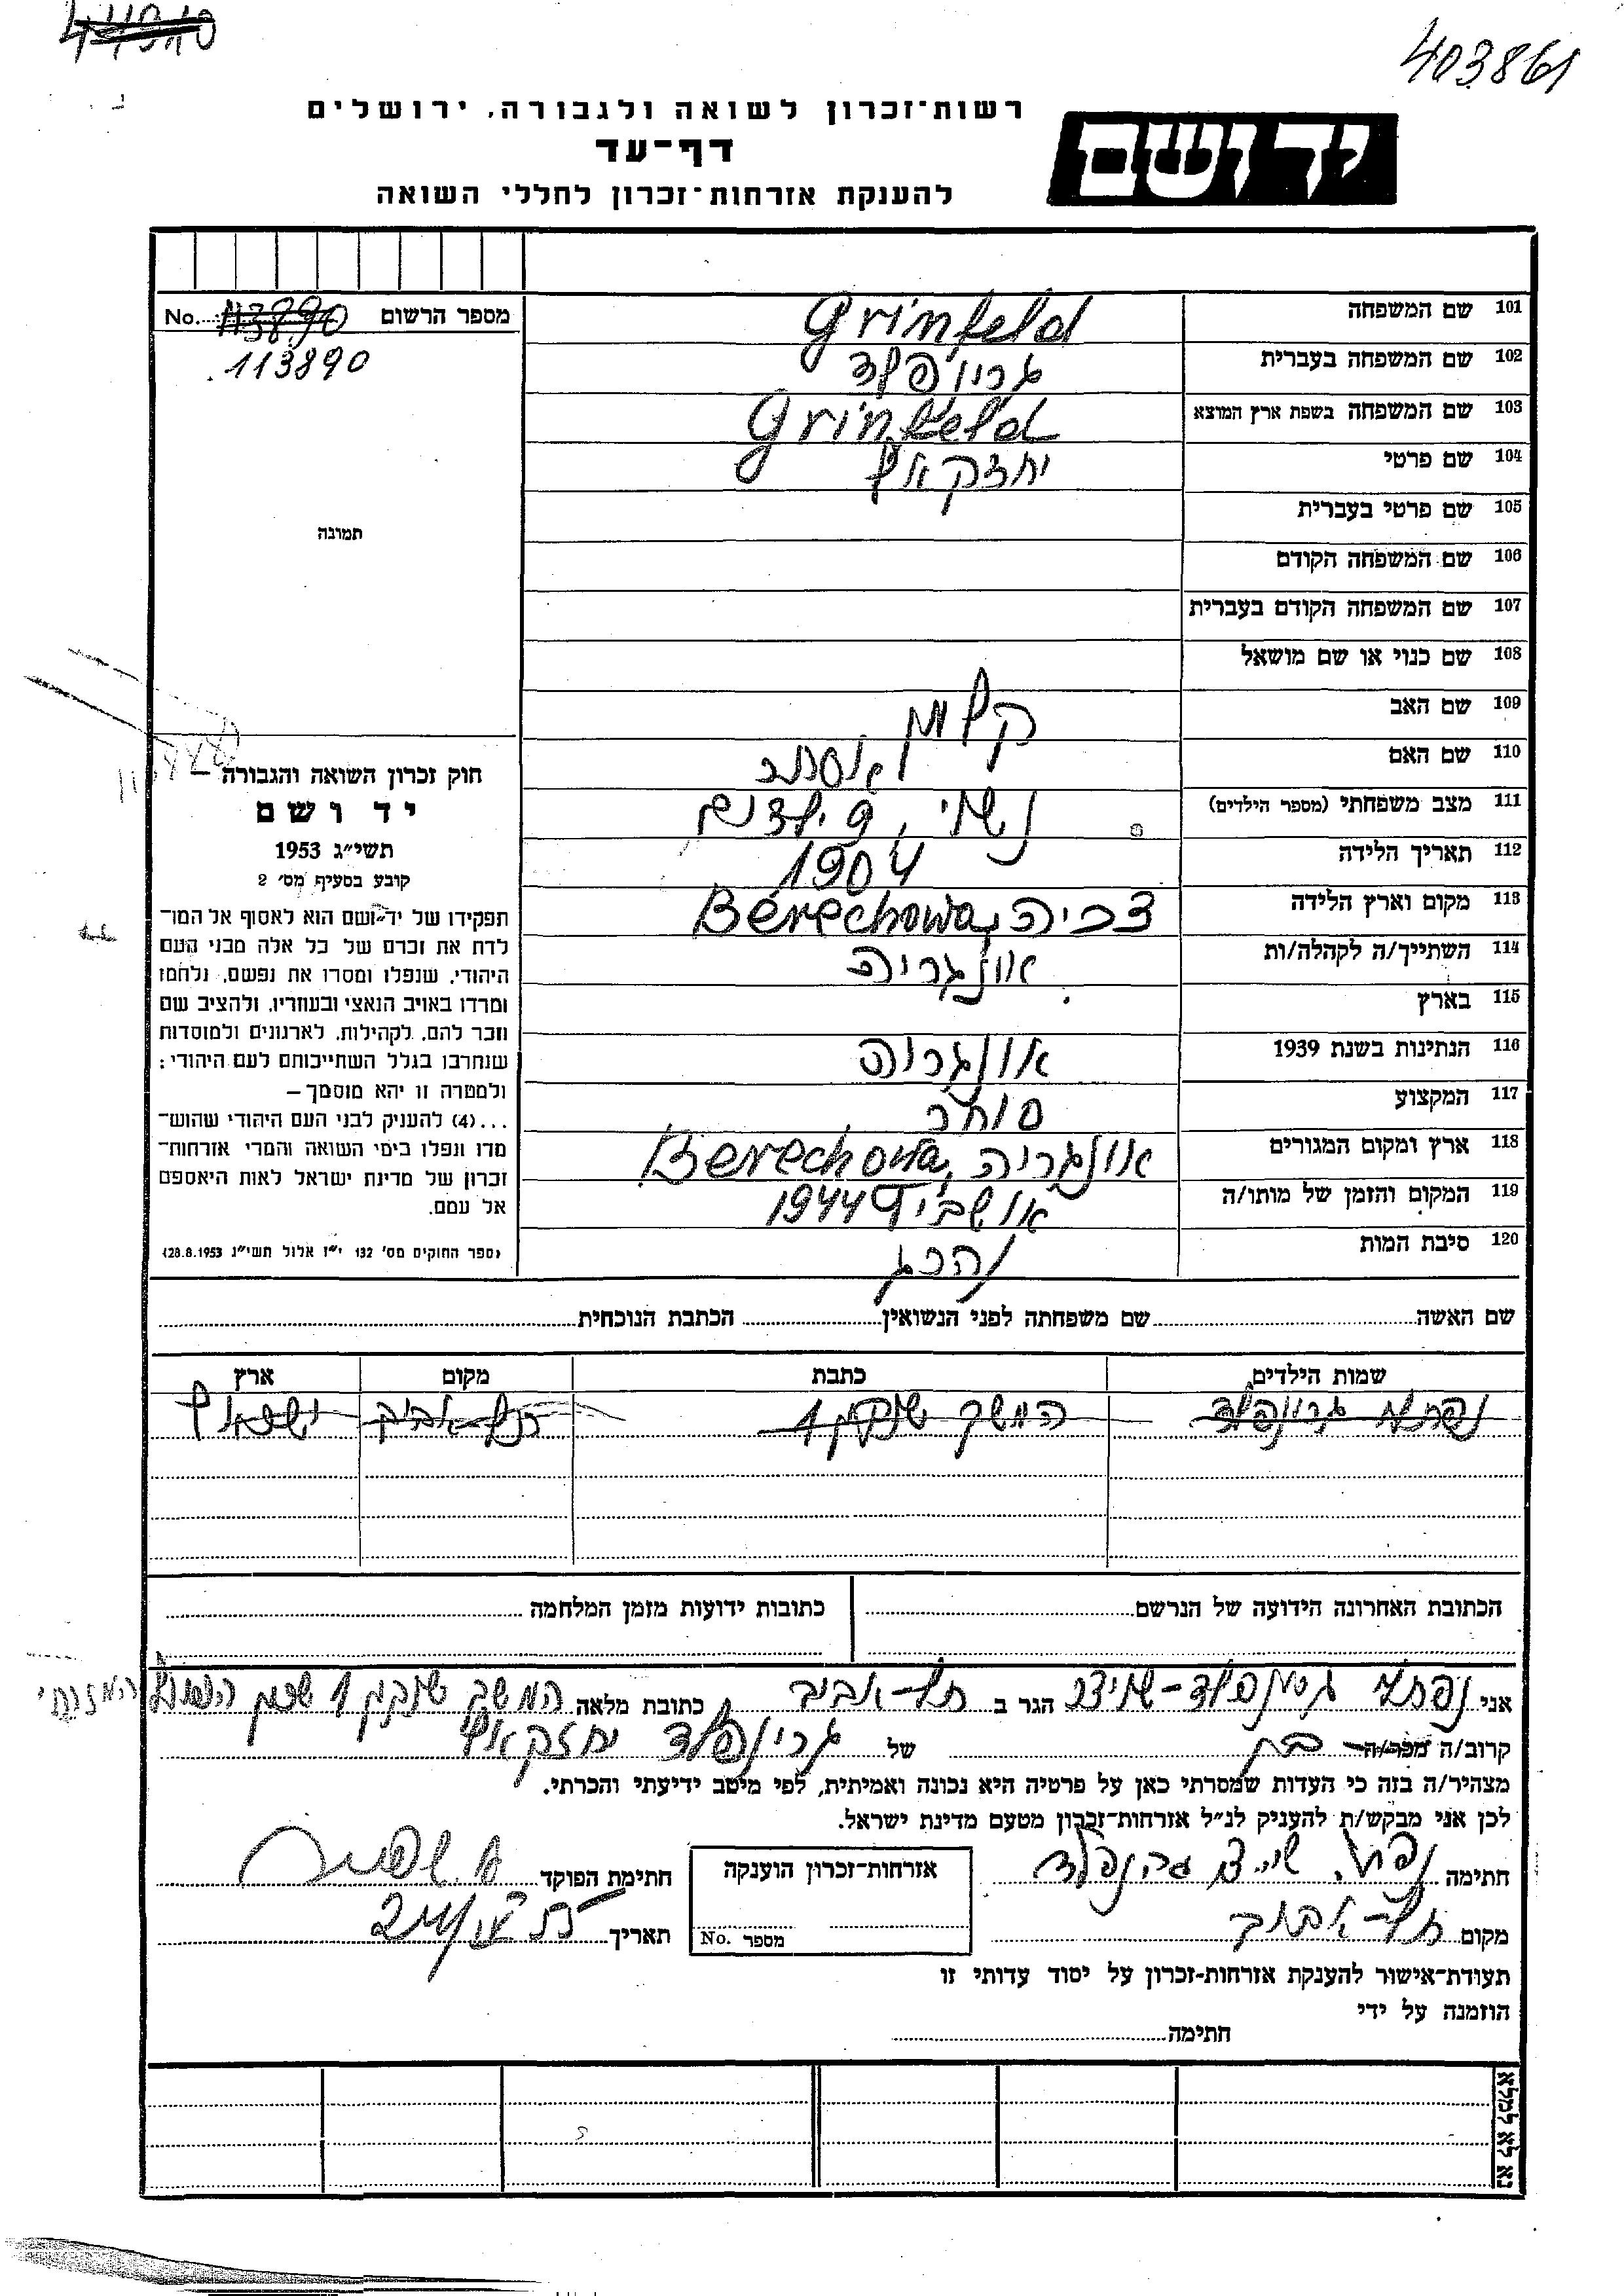 44910
403861
רשות־זכרון לשואה ולגבורה, ירושלים
יד ושם
דף־עד
להענקת אזרחות־זכרון לחללי השואה
101 שם המשפחה Grinfeld
מספר הרשום No. 113890
113890
102 שם המשפחה בעברית גרינפלד
103 שם המשפחה בשפת ארץ המוצא Grinfeld
104 שם פרטי יחזקאל
105 שם פרטי בעברית
תמונה
106 שם המשפחה הקודם
107 שם המשפחה הקודם בעברית
108 שם כנוי או שם מושאל
109 שם האב קלמן
110 שם האם אסתר
111 מצב משפחתי (מספר הילדים) נשוי, 9 ילדים
112 תאריך הלידה 1904
113 מקום וארץ הלידה צכיה, Berechowa
114 השתייך/ה לקהלה/ות אונגריה
115 בארץ
116 הנתינות בשנת 1939 אונגריה
117 המקצוע סוחר
118 ארץ ומקום המגורים אונגריה, Berechowa
119 המקום והזמן של מותו/ה אושביץ 1944
120 סיבת המות נהרג
חוק זכרון השואה והגבורה –
יד ושם
תשי״ג 1953
קובע בסעיף מס׳ 2
תפקידו של יד־ושם הוא לאסוף אל המו־
לדת את זכרם של כל אלה מבני העם
היהודי, שנפלו ומסרו את נפשם, נלחמו
ומרדו באויב הנאצי ובעוזריו, ולהציב שם
וזכר להם, לקהילות, לארגונים ולמוסדות
שנחרבו בגלל השתייכותם לעם היהודי;
ולמטרה זו יהא מוסמך –
...(4) להעניק לבני העם היהודי שהוש־
מדו ונפלו בימי השואה והמרי אזרחות־
זכרון של מדינת ישראל לאות היאספם
אל עמם.
(ספר החוקים מס׳ 132 י״ז אלול תשי״ג 28.8.1953)
שם האשה שם משפחתה לפני הנשואין הכתבת הנוכחית
שמות הילדים כתבת מקום ארץ
גרינפלד המשך שנקין 1 תל אביב ישראל
הכתובת האחרונה הידועה של הנרשם כתובות ידועות מזמן המלחמה
אני נפתלי גרינפלד-שניצר הגר ב תל-אביב כתובת מלאה המשך שנקין 1 שכון הפועל המזרחי
קרוב/ה מכר/ה בת של גרינפלד יחזקאל
מצהיר/ה בזה כי העדות שמסרתי כאן על פרטיה היא נכונה ואמיתית, לפי מיטב ידיעתי והכרתי.
לכן אני מבקש/ת להעניק לנ״ל אזרחות־זכרון מטעם מדינת ישראל.
חתימה גרינפלד אזרחות־זכרון הוענקה חתימת הפוקד
מקום תל-אביב מספר No. תאריך
תעודת־אישור להענקת אזרחות־זכרון על יסוד עדותי זו
הוזמנה על ידי
חתימה
נא לא למלא